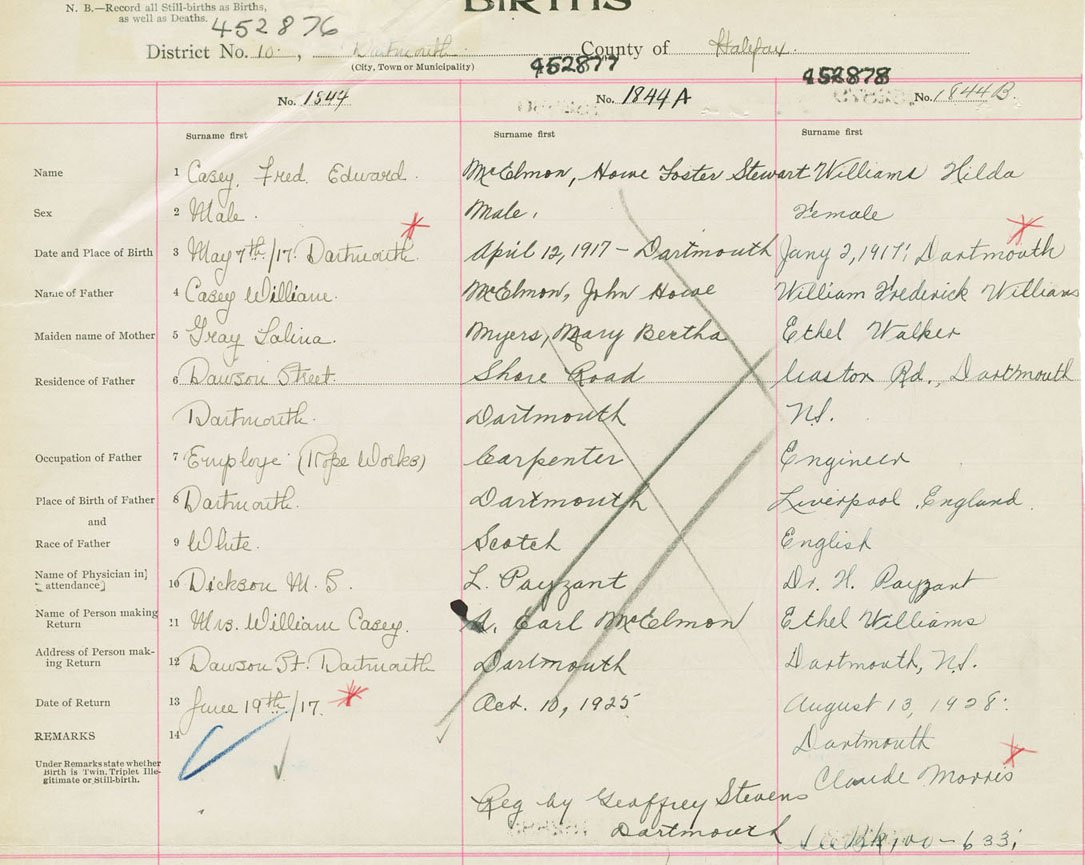 BIRTHS
N. B.—Record all Still-births as Births,
as well as Deaths.
452876
District No. 10, Dartmouth County of Halifax
(City, Town or Municipality)
452877 452878
No. 1844 No. 1844 A No. 1844 B
Surname first Surname first Surname first
Name 1 Casey, Fred. Edward. McElmon, Howe Foster Stewart Williams Hilda
Sex 2 Male. Male. Female
Date and Place of Birth 3 May 7th/17. Dartmouth. April 12, 1917 – Dartmouth Jany 2, 1917; Dartmouth
Name of Father 4 Casey William. McElmon, John Howe William Frederick Williams
Maiden name of Mother 5 Gray Salina. Myers, Mary Bertha Ethel Walker
Residence of Father 6 Dawson Street. Shore Road Gaston Rd., Dartmouth
Dartmouth. Dartmouth N.S.
Occupation of Father 7 Employe (Rope Works) Carpenter Engineer
Place of Birth of Father 8 Dartmouth. Dartmouth Liverpool, England.
and
Race of Father 9 White. Scotch English
Name of Physician in attendance] 10 Dickson M. S. L. Payzant Dr. H. Payzant
Name of Person making Return 11 Mrs. William Casey. Earl McElmon Ethel Williams
Address of Person making Return 12 Dawson St. Dartmouth Dartmouth Dartmouth, N.S.
Date of Return 13 June 19th/17. Oct. 10, 1925 August 13, 1928.
REMARKS 14 Dartmouth
Under Remarks state whether
Birth is Twin, Triplet Ille-
gitimate or Still-birth.
Claude Morris
Reg by Geoffrey Stevens
Dartmouth
100 – 633